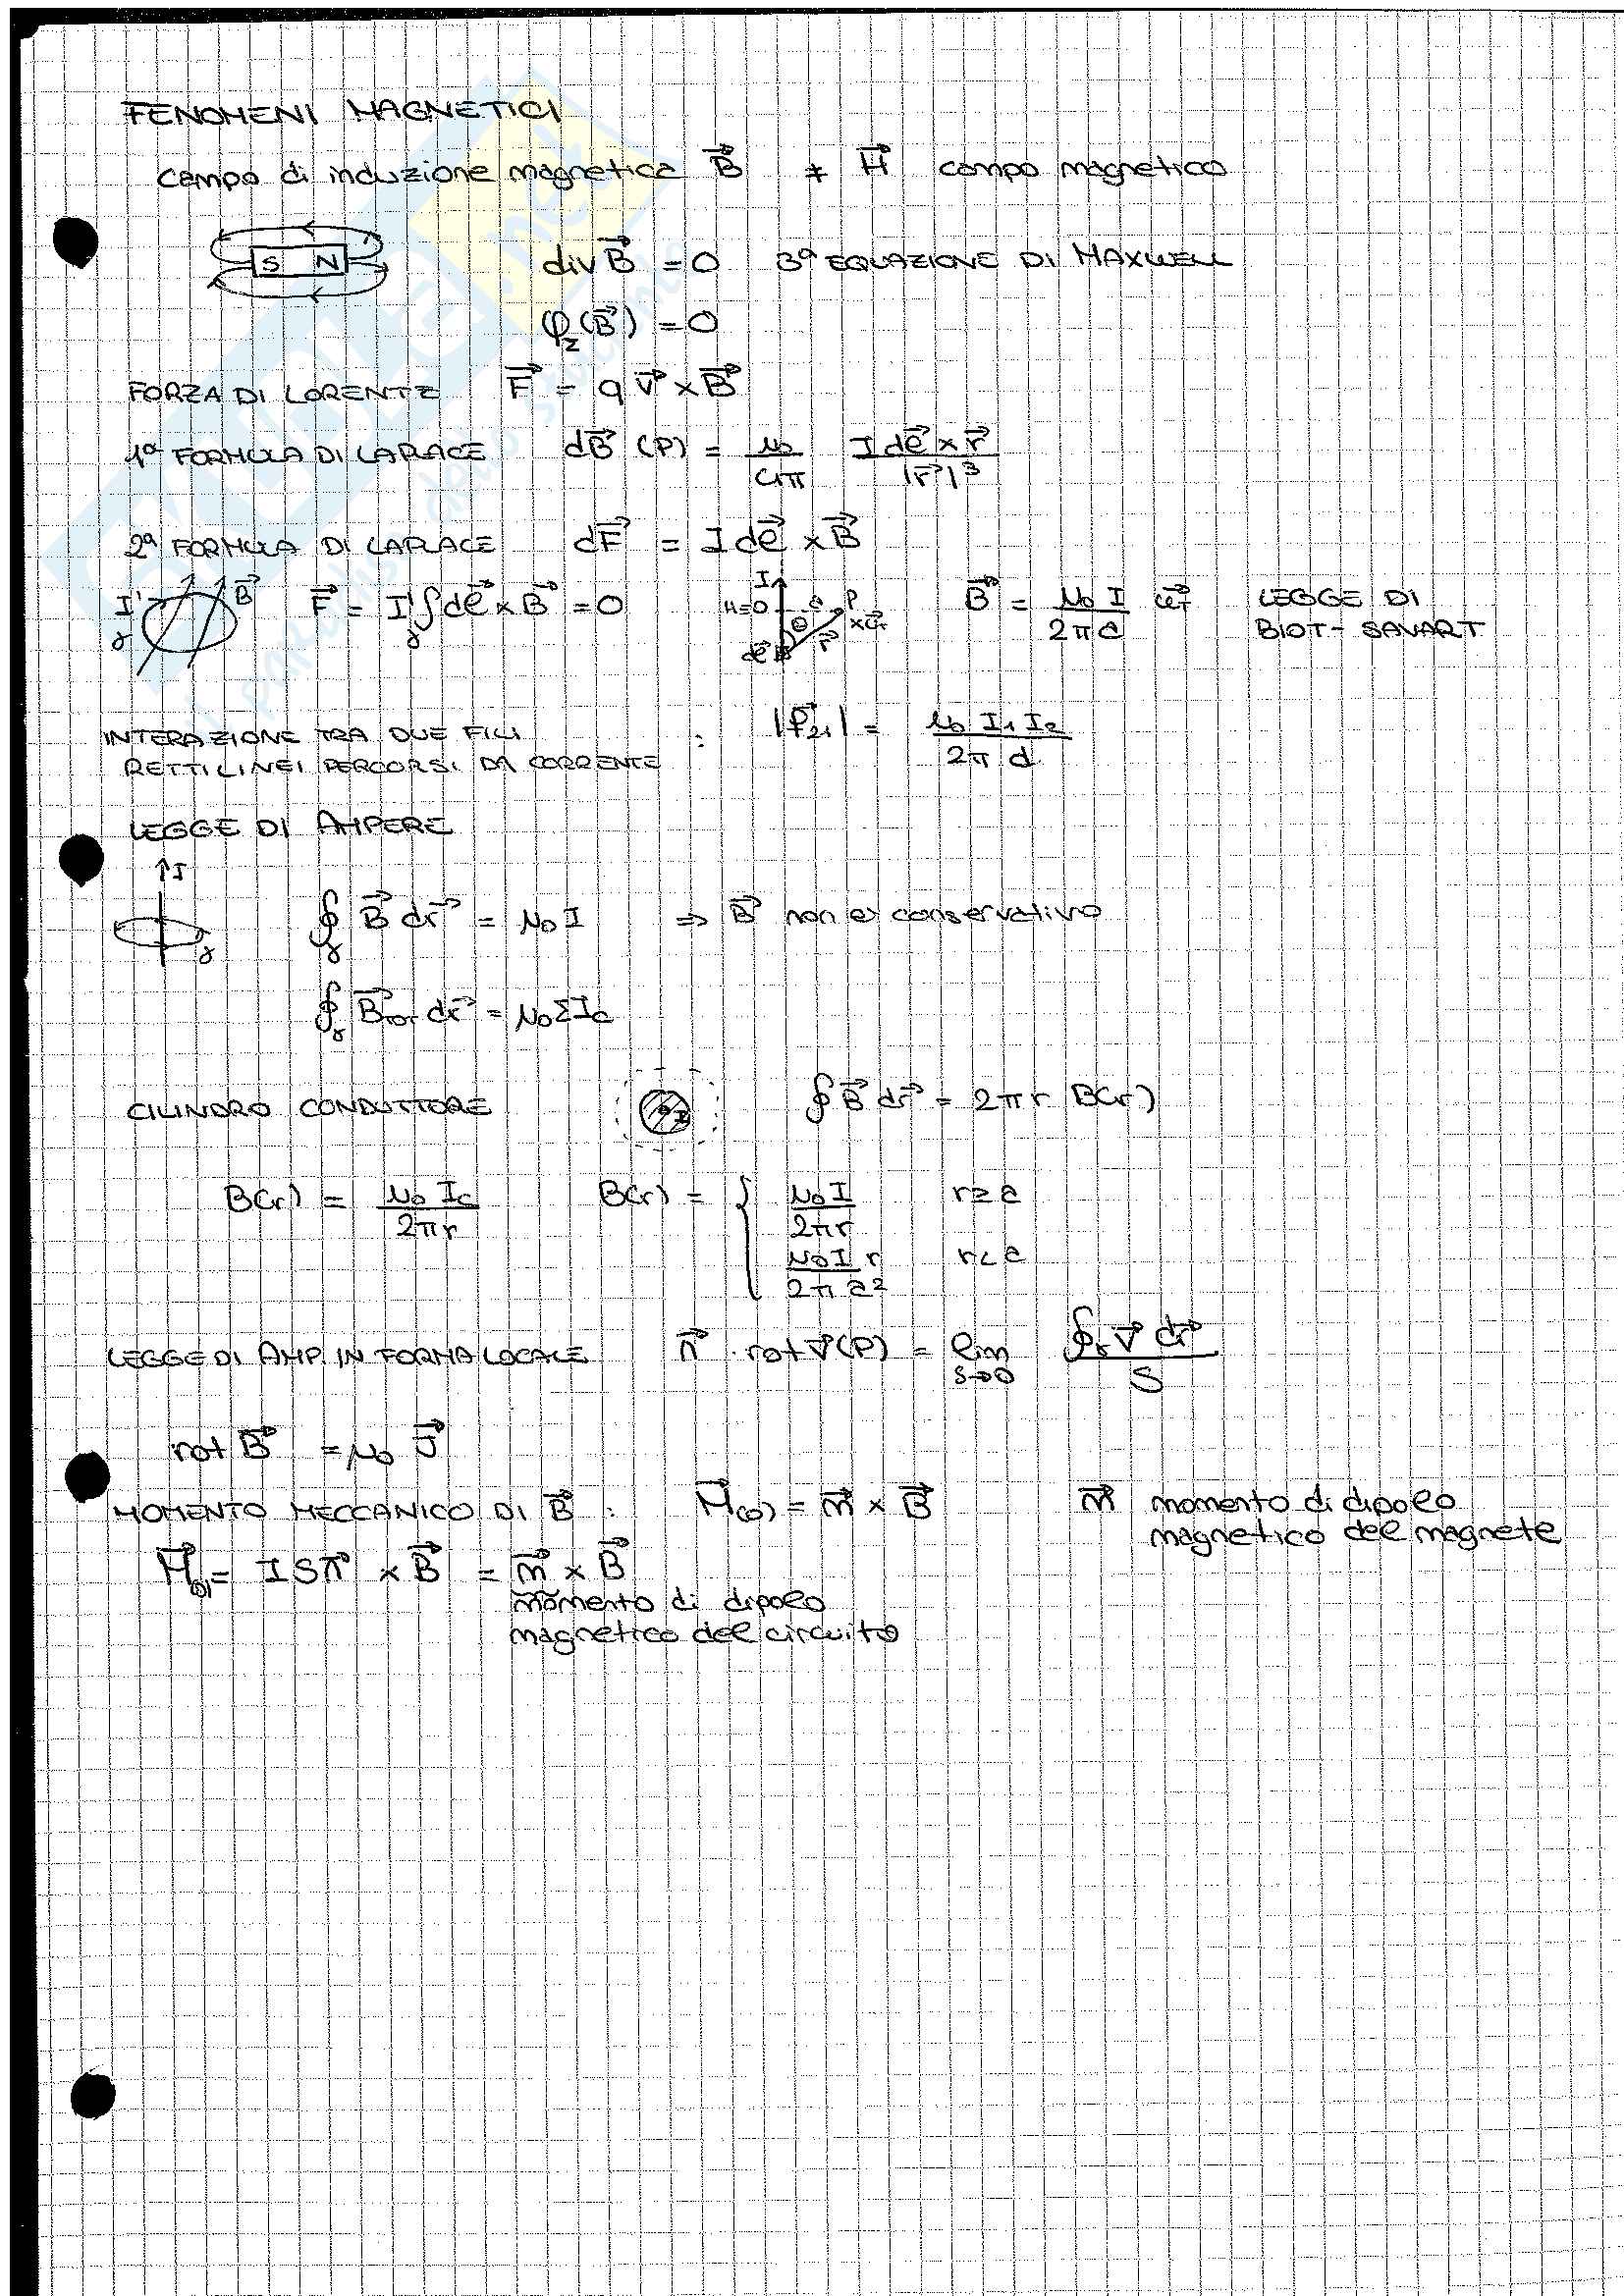 FENOMENI MAGNETICI
campo di induzione magnetica B⃗ ≠ H⃗ campo magnetico
S N
div B⃗ = 0 3ª EQUAZIONE DI MAXWELL
φ_Σ(B⃗) = 0
FORZA DI LORENTZ F⃗ = q v⃗ × B⃗
1ª FORMULA DI LAPLACE dB⃗ (P) = μ₀/4π I dℓ⃗ × r⃗ / |r⃗|³
2ª FORMULA DI LAPLACE dF⃗ = I dℓ⃗ × B⃗
I' γ B⃗ F⃗ = I' ∫_γ dℓ⃗ × B⃗ = 0 I H=0 a P θ r⃗ dℓ⃗ B⃗ = μ₀ I / 2πa u⃗_T LEGGE DI
BIOT-SAVART
INTERAZIONE TRA DUE FILI : |F⃗₂₁| = μ₀ I₁ I₂ / 2π d
RETTILINEI PERCORSI DA CORRENTE
LEGGE DI AMPERE
I
γ ∮_γ B⃗ dr⃗ = μ₀ I ⇒ B⃗ non è conservativo
∮_γ B⃗_TOT dr⃗ = μ₀ Σ I_c
CILINDRO CONDUTTORE I ∮ B⃗ dr⃗ = 2πr B(r)
B(r) = μ₀ I_c / 2πr B(r) = { μ₀ I / 2πr r ≥ a
μ₀ I r / 2π a² r < a
LEGGE DI AMP. IN FORMA LOCALE n⃗ · rot v⃗ (P) = lim S→0 ∮_γ v⃗ dr⃗ / S
rot B⃗ = μ₀ J⃗
MOMENTO MECCANICO DI B⃗ : M⃗(o) = m⃗ × B⃗ m⃗ momento di dipolo
magnetico del magnete
M⃗(o) = I S n⃗ × B⃗ = m⃗ × B⃗
momento di dipolo
magnetico del circuito